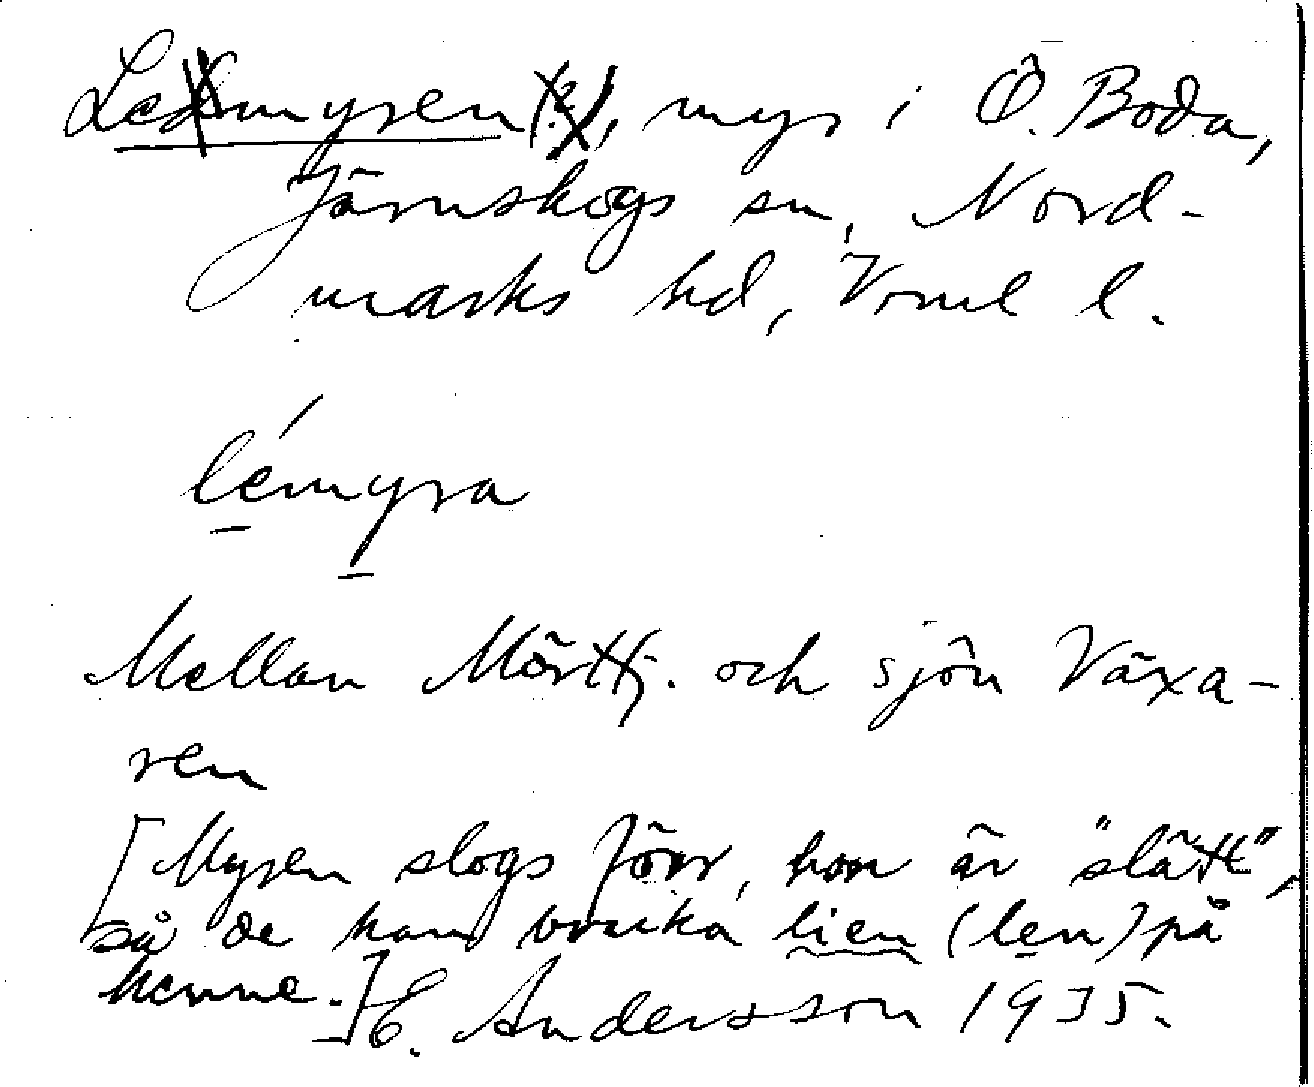 Lemyren, myr i Ö. Boda,
Järnskogs sn, Nord-
marks hd, Vrml l.
lémyra
Mellan Mörttj. och sjön Växa-
ren
[Myren slogs förr, hon är "slätt",
så de kan bruka lien (len) på
henne.] E. Andersson 1935.